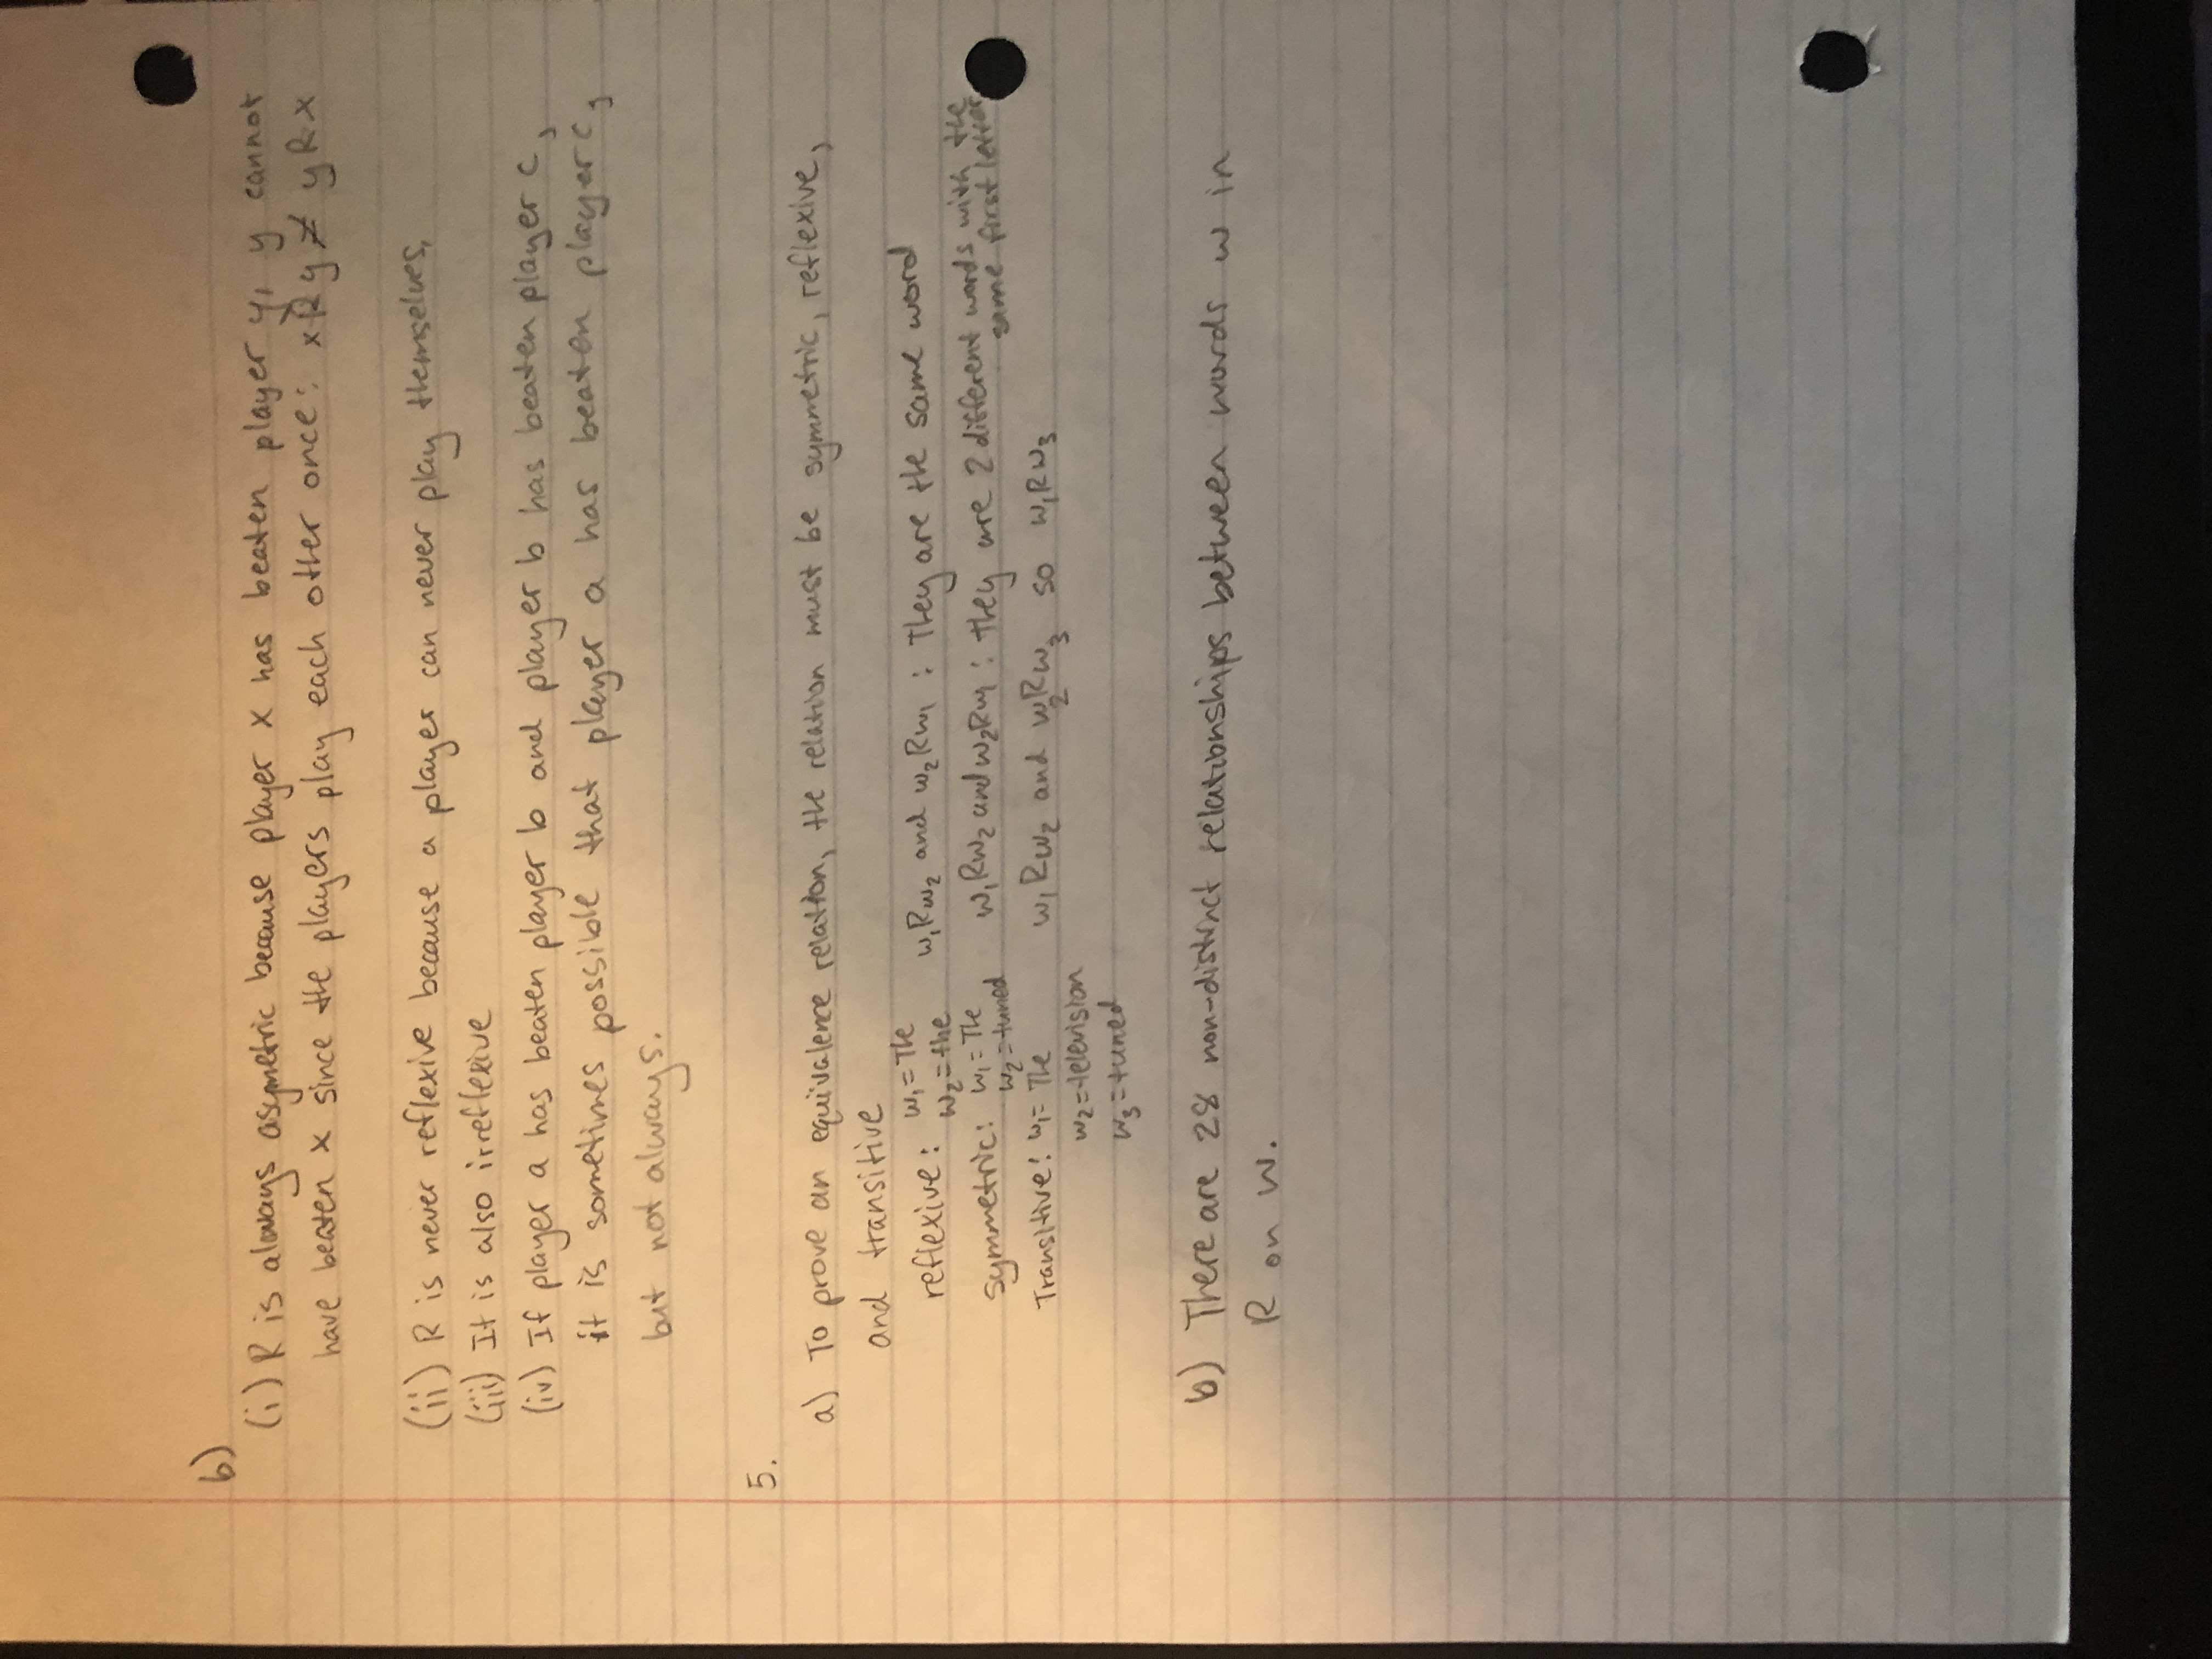 b)
(i) R is always asymetric because player x has beaten player y, y cannot
have beaten x since the players play each other once: xRy ≠ yRx
(ii) R is never reflexive because a player can never play themselves.
(iii) It is also irreflexive
(iv) If player a has beaten player b and player b has beaten player c,
it is sometimes possible that player a has beaten player c,
but not always.
5.
a) To prove an equivalence relation, the relation must be symmetric, reflexive,
and transitive
reflexive: w₁ = The w₁Rw₂ and w₂Rw₁ : They are the same word
w₂ = the
symmetric: w₁ = The w₁Rw₂ and w₂Rw₁ : They are 2 different words with the
w₂ = tuned same first letter
Transitive: w₁ = The w₁Rw₂ and w₂Rw₃ so w₁Rw₃
w₂ = television
w₃ = tuned
b) There are 28 non-distinct relationships between words w in
R on W.